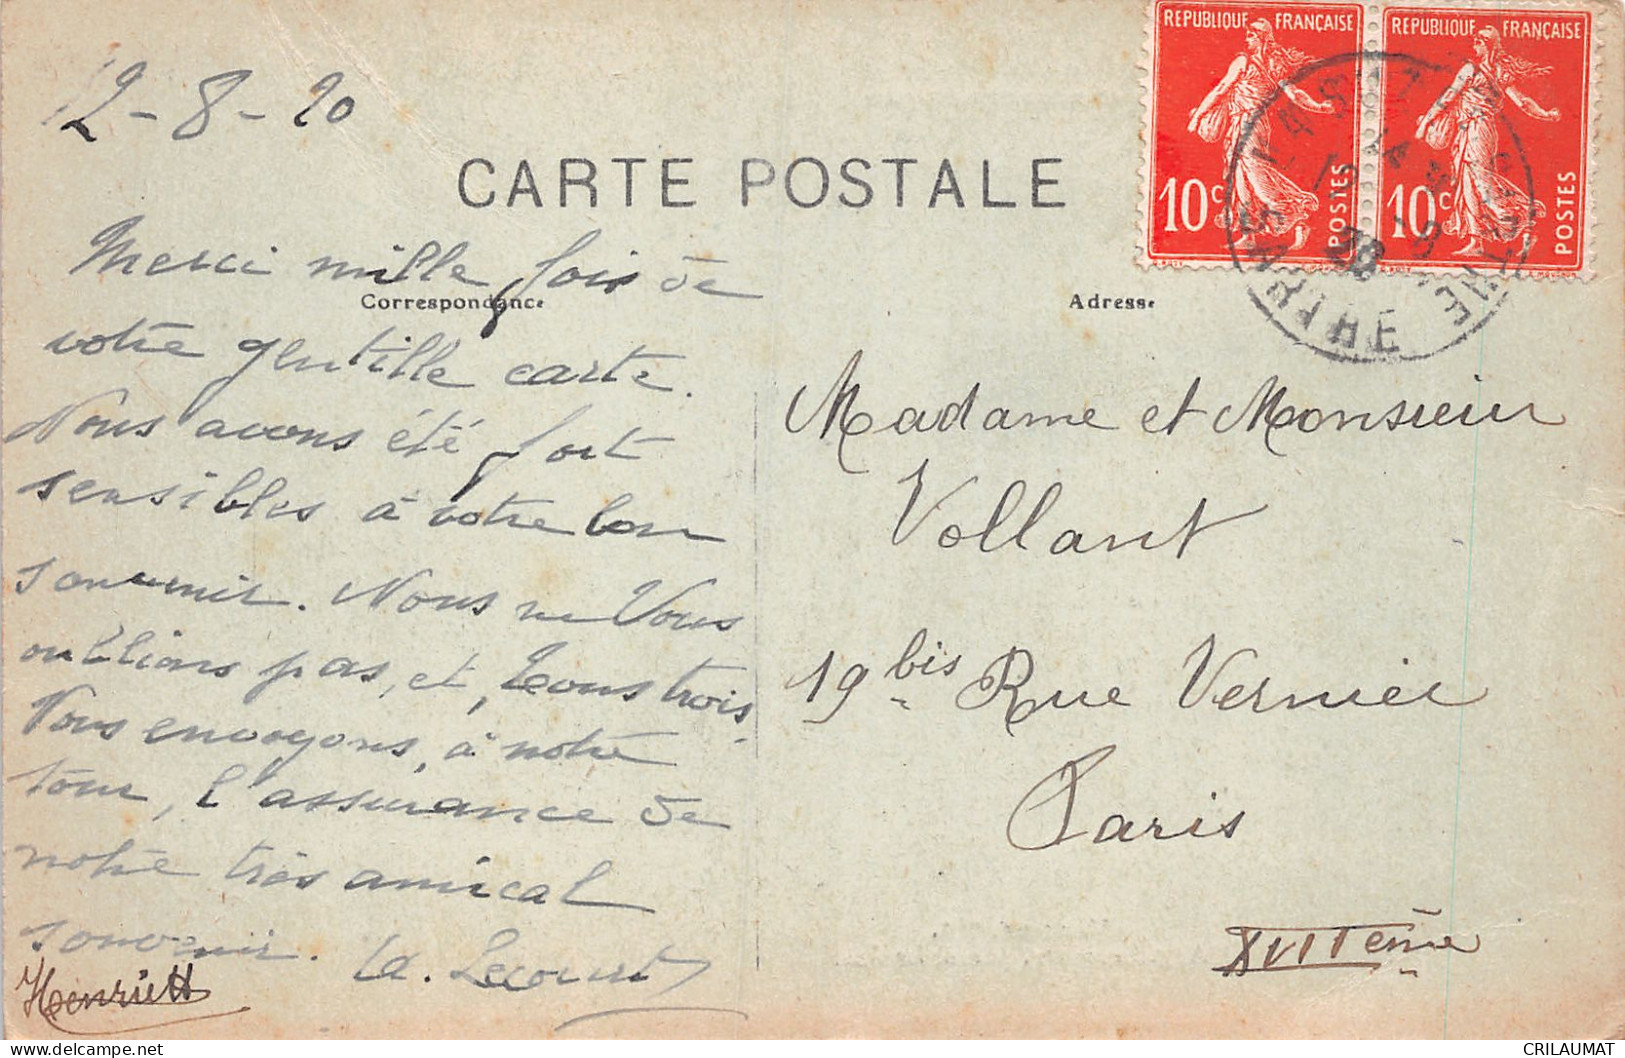 12-8-20
CARTE POSTALE
REPUBLIQUE FRANÇAISE
10c POSTES
REPUBLIQUE FRANÇAISE
10c POSTES
Correspondance
Adresse
Merci mille fois de
votre gentille carte.
Nous avons été fort
sensibles à votre bon
souvenir. Nous ne Vous
oublions pas, et, tous trois,
Vous envoyons, à notre
tour, l'assurance de
notre très amical
souvenir. Lecourt
Henriett
Madame et Monsieur
Vollant
19 bis Rue Vernier
Paris
XVIIème
CRILAUMAT